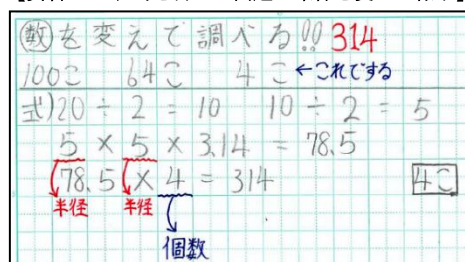 数を変えて調べる!! 314
100こ 64こ 4こ ←これでする
式)20÷2=10 10÷2=5
5×5×3.14=78.5
78.5×4=314 4こ
半径 半径
個数